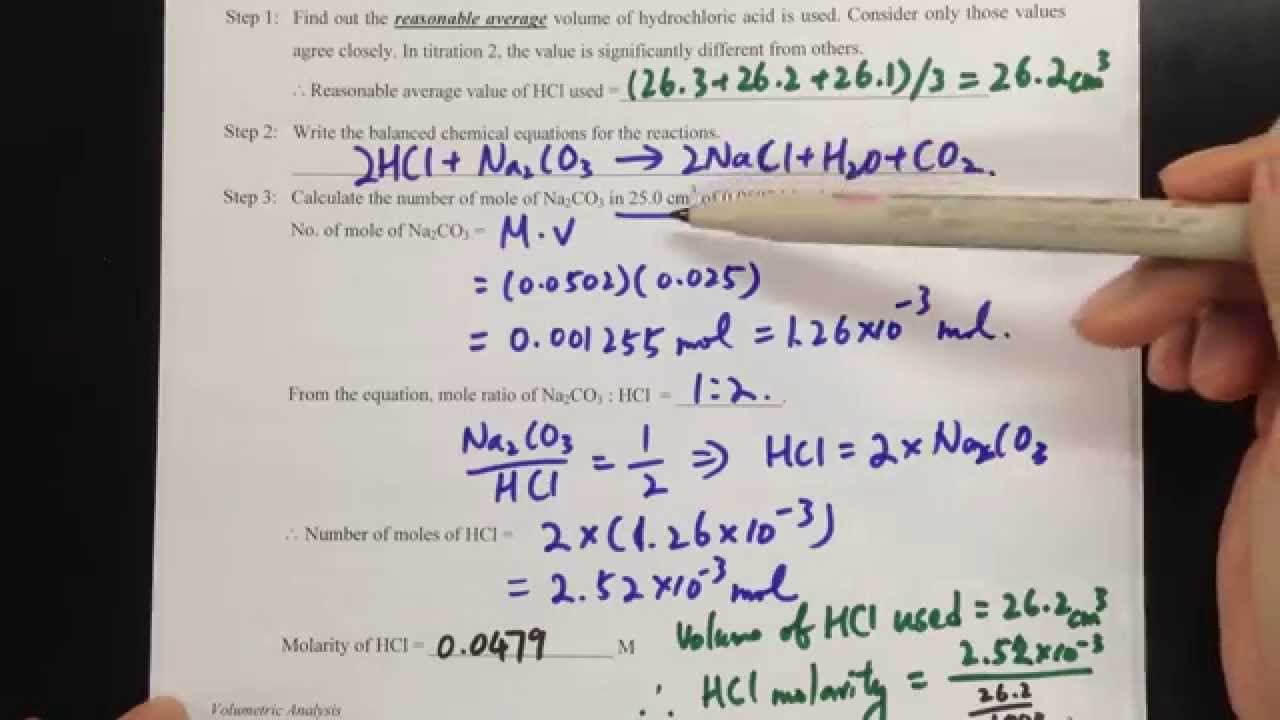 Step 1: Find out the reasonable average volume of hydrochloric acid is used. Consider only those values
agree closely. In titration 2, the value is significantly different from others.
∴ Reasonable average value of HCl used = (26.3+26.2+26.1)/3 = 26.2cm³
Step 2: Write the balanced chemical equations for the reactions.
2HCl + Na₂CO₃ → 2NaCl + H₂O + CO₂.
Step 3: Calculate the number of mole of Na₂CO₃ in 25.0 cm³ of
No. of mole of Na₂CO₃ = M·V
= (0.0502)(0.025)
= 0.001255 mol = 1.26×10⁻³ mol.
From the equation, mole ratio of Na₂CO₃ : HCl = 1:2.
Na₂CO₃/HCl = 1/2 ⇒ HCl = 2×Na₂CO₃
∴ Number of moles of HCl = 2×(1.26×10⁻³)
= 2.52×10⁻³ mol
Volume of HCl used = 26.2cm³
Molarity of HCl = 0.0479 M
∴ HCl molarity = 2.52×10⁻³
26.2
Volumetric Analysis